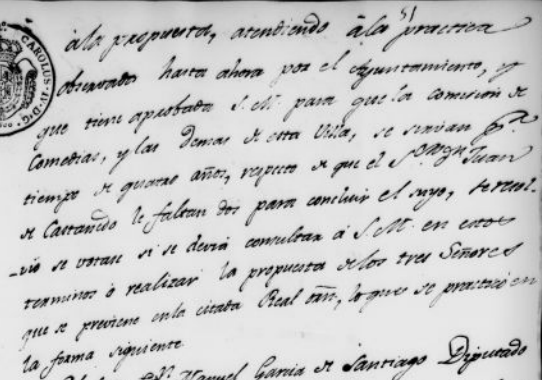 51
CAROLUS IV D G
à la propuesta, atendiendo à la practica
observada hasta ahora por el Ayuntamiento, y
que tiene aprobada S. M. para que la comision de
Comedias, y las demas de esta Villa, se sirvan pr.
tiempo de quatro años, respecto de que el Sor. Dn. Juan
de Castanedo le faltan dos para concluir el suyo, se resol-
-vió se votase si se devia consultar à S. M. en estos
terminos ò realizar la propuesta de los tres Señores
que se previene en la citada Real orn, lo que se practicó en
la forma siguiente
Sr. Dn. Manuel Garcia de Santiago Diputado